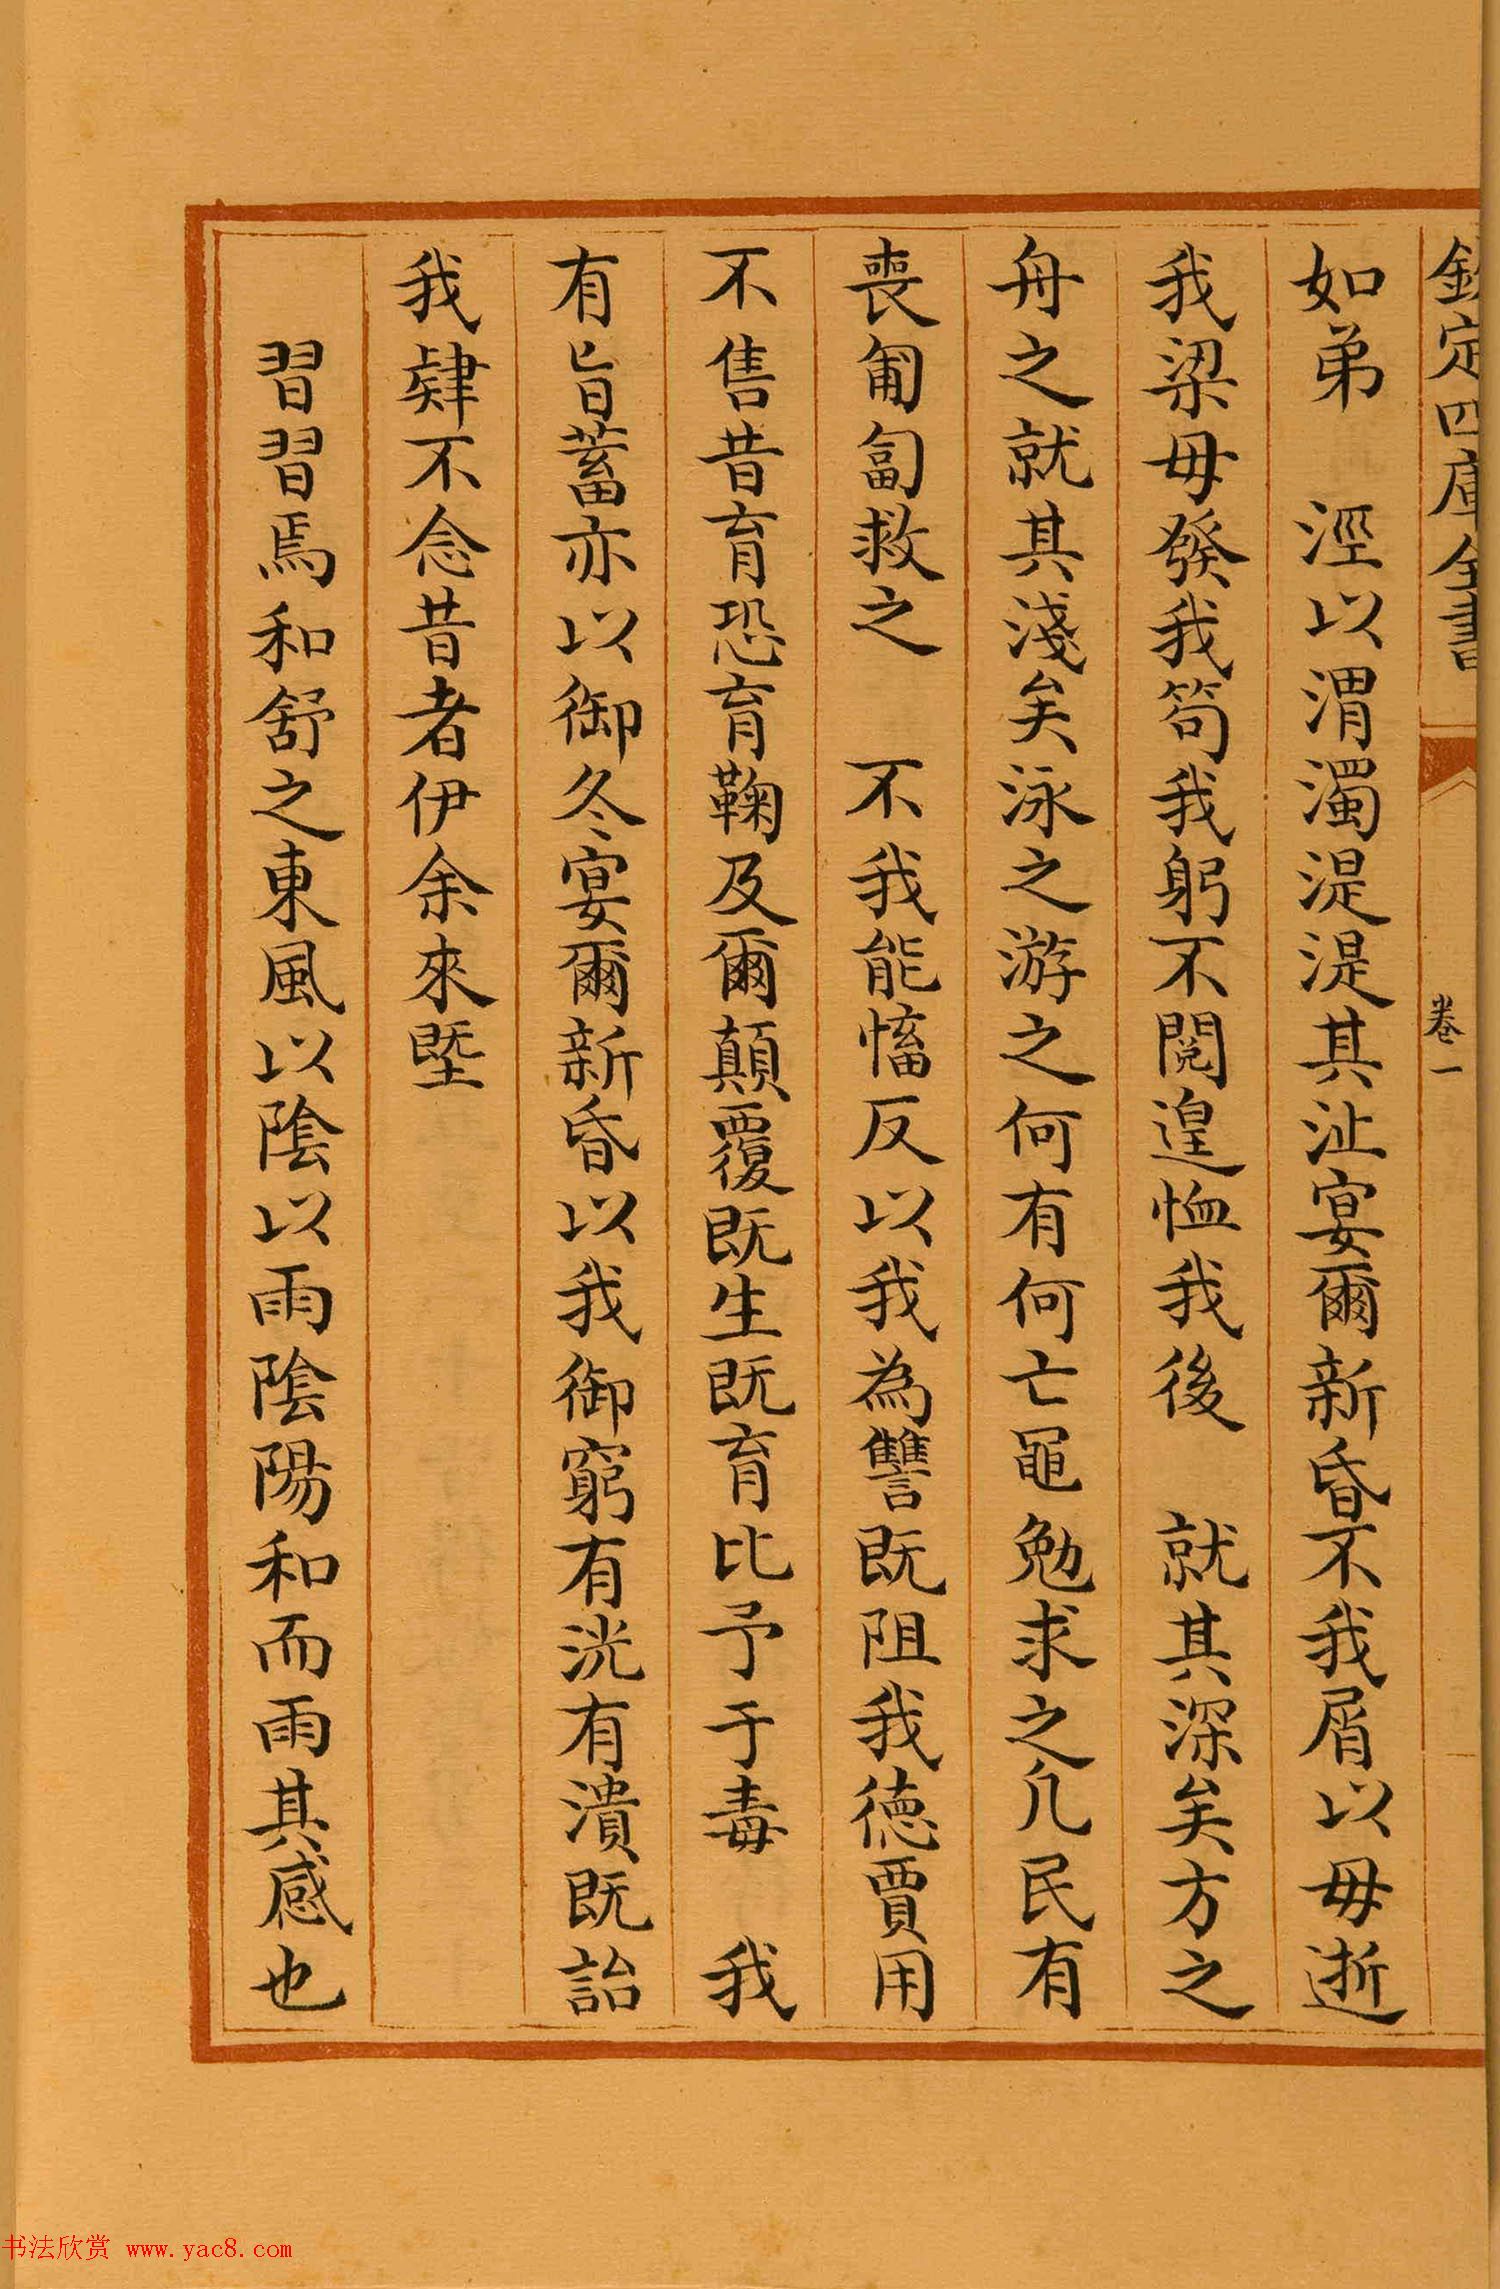 欽定四庫全書
卷一
如弟　涇以渭濁湜湜其沚宴爾新昏不我屑以毋逝
我梁毋發我笱我躬不閱遑恤我後　就其深矣方之
舟之就其淺矣泳之游之何有何亡黽勉求之凡民有
喪匍匐救之　不我能慉反以我為讐既阻我德賈用
不售昔育恐育鞠及爾顛覆既生既育比予于毒　我
有旨蓄亦以御冬宴爾新昏以我御窮有洸有潰既詒
我肄不念昔者伊余來塈
習習焉和舒之東風以陰以雨陰陽和而雨其感也
书法欣赏 www.yac8.com